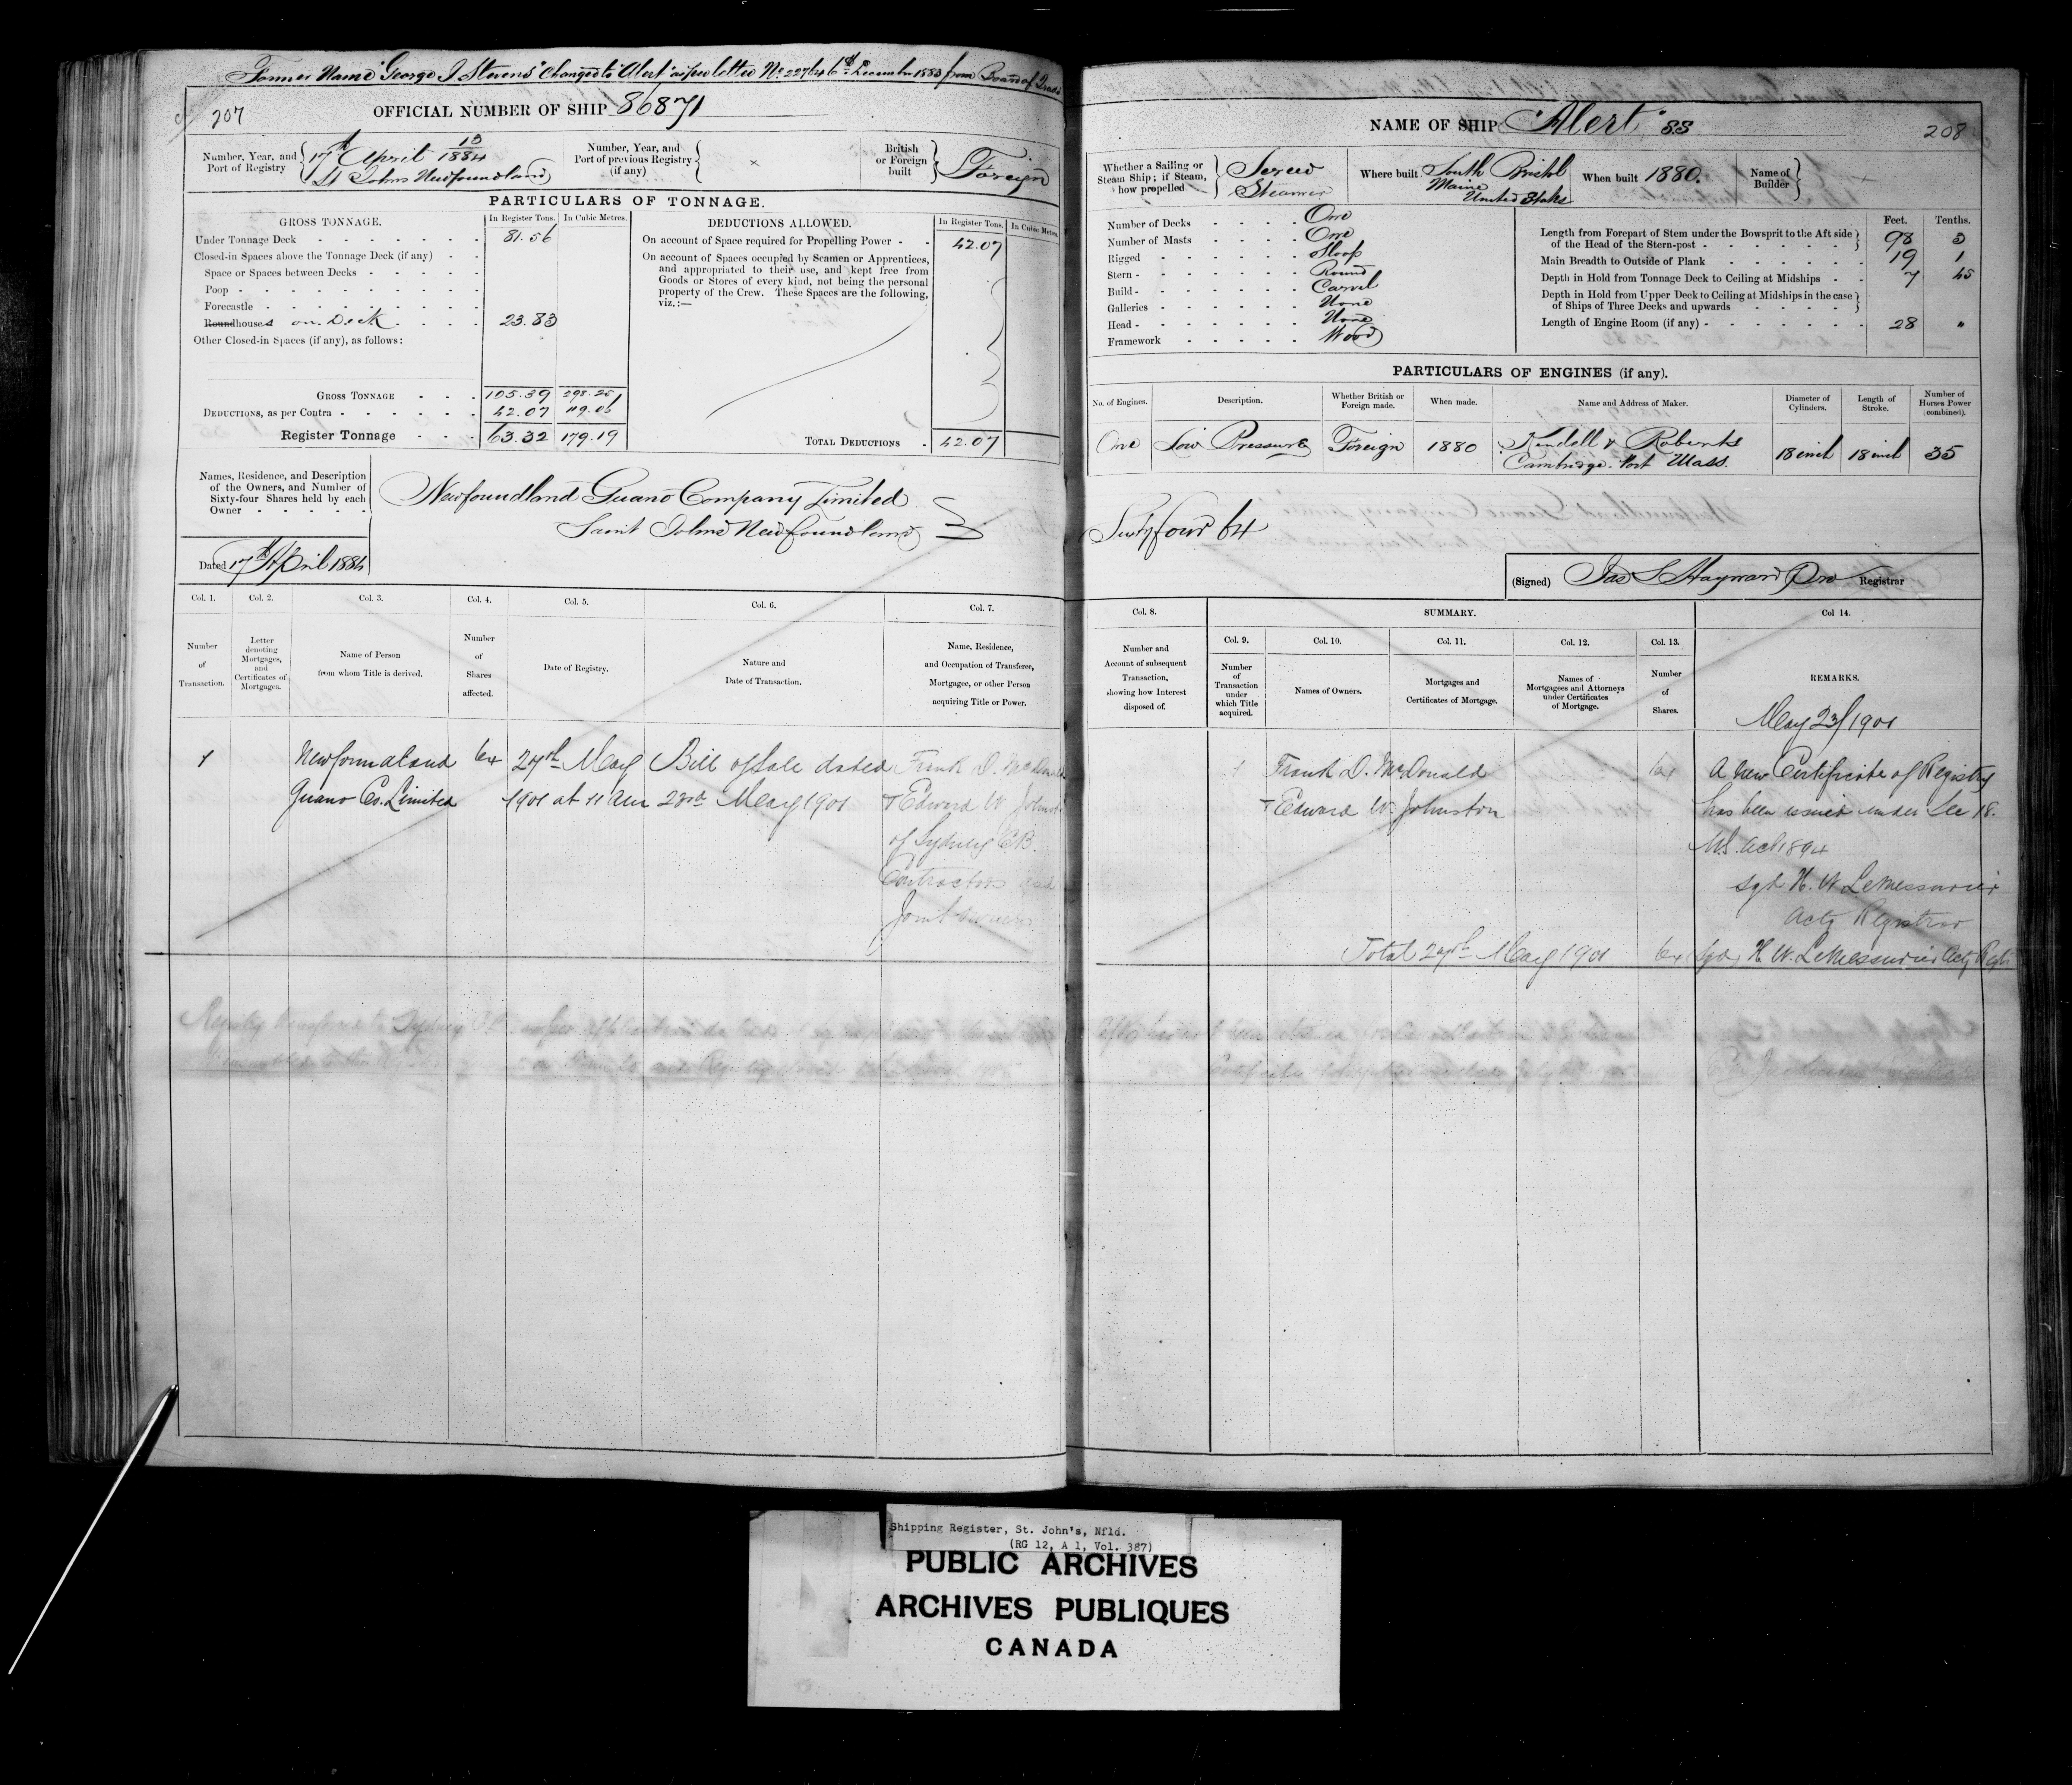 Former Name "George J Stevens" Changed to "Alert" as per letter No 22764 6th December 1883 from Board of Trade
207
OFFICIAL NUMBER OF SHIP 86871
Number, Year, and Port of Registry
13/1884
17th April
St Johns Newfoundland
Number, Year, and Port of previous Registry (if any)
×
British or Foreign built
Foreign
PARTICULARS OF TONNAGE.
GROSS TONNAGE. In Register Tons. In Cubic Metres.
Under Tonnage Deck 81.56
Closed-in Spaces above the Tonnage Deck (if any)
Space or Spaces between Decks
Poop
Forecastle
Roundhouses on Deck 23.83
Other Closed-in Spaces (if any), as follows:
GROSS TONNAGE 105.39 298.25
DEDUCTIONS, as per Contra 42.07 119.06
Register Tonnage 63.32 179.19
DEDUCTIONS ALLOWED. In Register Tons. In Cubic Metres.
On account of Space required for Propelling Power 42.07
On account of Spaces occupied by Seamen or Apprentices,
and appropriated to their use, and kept free from
Goods or Stores of every kind, not being the personal
property of the Crew. These Spaces are the following,
viz.:—
TOTAL DEDUCTIONS 42.07
Names, Residence, and Description
of the Owners, and Number of
Sixty-four Shares held by each
Owner
Newfoundland Guano Company Limited
Saint Johns Newfoundland
Dated 17th April 1884
Col. 1. Col. 2. Col. 3. Col. 4. Col. 5. Col. 6. Col. 7.
Number of Transaction.
Letter denoting Mortgages, and Certificates of Mortgages.
Name of Person from whom Title is derived.
Number of Shares affected.
Date of Registry.
Nature and Date of Transaction.
Name, Residence, and Occupation of Transferee, Mortgagee, or other Person acquiring Title or Power.
1 Newfoundland 64 24th May Bill of Sale dated Frank D. McDonald
Guano Co. Limited 1901 at 11 am 23rd May 1901 & Edward W Johnston
of Sydney C.B.
Contractors and
Joint Owners
Registry transferred to Sydney
NAME OF SHIP "Alert" SS
208
Whether a Sailing or Steam Ship; if Steam, how propelled
Screw
Steamer
Where built
South Bristol
Maine
United States
When built 1880.
Name of Builder
Number of Decks One
Number of Masts One
Rigged Sloop
Stern Round
Build Carvel
Galleries None
Head None
Framework Wood
Feet. Tenths.
Length from Forepart of Stem under the Bowsprit to the Aft side
of the Head of the Stern-post 98 3
Main Breadth to Outside of Plank 19 1
Depth in Hold from Tonnage Deck to Ceiling at Midships 7 45
Depth in Hold from Upper Deck to Ceiling at Midships in the case
of Ships of Three Decks and upwards
Length of Engine Room (if any) 28 "
PARTICULARS OF ENGINES (if any).
No. of Engines. Description. Whether British or Foreign made. When made. Name and Address of Maker. Diameter of Cylinders. Length of Stroke. Number of Horses Power (combined).
One Low Pressure Foreign 1880 Kendall & Roberts 18 inch 18 inch 35
Cambridge Port Mass.
Sixty four 64
(Signed) Jas S Hayward Registrar
Col. 8. SUMMARY. Col 14.
Col. 9. Col. 10. Col. 11. Col. 12. Col. 13.
Number and Account of subsequent Transaction, showing how Interest disposed of.
Number of Transaction under which Title acquired.
Names of Owners.
Mortgages and Certificates of Mortgage.
Names of Mortgagees and Attorneys under Certificates of Mortgage.
Number of Shares.
REMARKS.
May 23/1901
1 Frank D. McDonald 64 A New Certificate of Registry
& Edward W. Johnston has been issued under Sec 18.
M.S. Act 1894
Sgd H. W. LeMessurier
Actg Registrar
Total 24th May 1901 64 Sgd H W. LeMessurier Actg Regr
Shipping Register, St. John's, Nfld.
(RG 12, A 1, Vol. 387)
PUBLIC ARCHIVES
ARCHIVES PUBLIQUES
CANADA